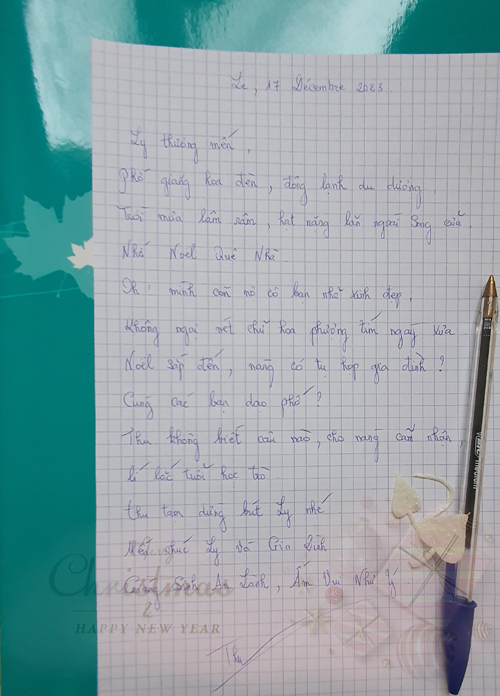 Le, 17 Décembre 2023
Ly thương mến,
Phố giăng hoa đèn, đông lạnh du dương,
Trời mưa lâm râm, hạt nắng lăn ngoài song cửa.
Nhớ Noel Quê Nhà
Oh! mình còn nợ cô bạn nhỏ xinh đẹp,
không ngại nét chữ hoa phượng tím ngày xưa
Noël sắp đến, nàng có tụ họp gia đình?
Cùng các bạn dạo phố?
Thu không biết câu nào, cho nàng cảm nhận,
lí lắc tuổi học trò.
Thu tạm dừng bút Ly nhé
Mến chúc Ly và Gia Đình
Giáng Sinh An Lành, Ấm Vui Như Ý
Thu
Christmas
&
HAPPY NEW YEAR